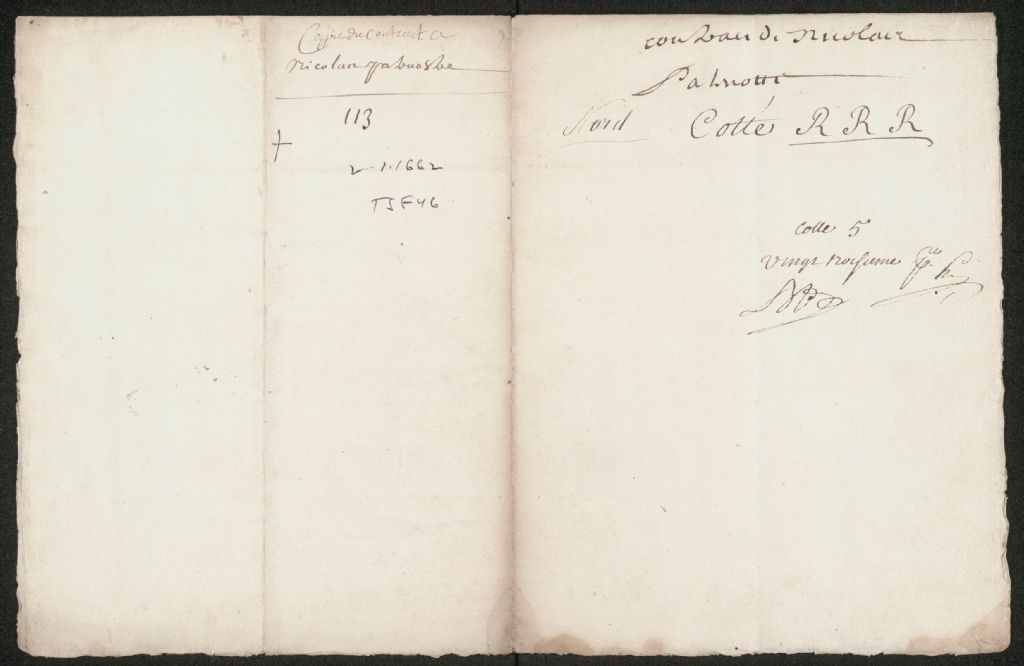 Coppie du contract a
nicolas patenostre
113
+
2.1.1662
TJF46
contract de nicolas
Patenotte
Nord Cotté R R R
Cotte 5
vingt troisieme